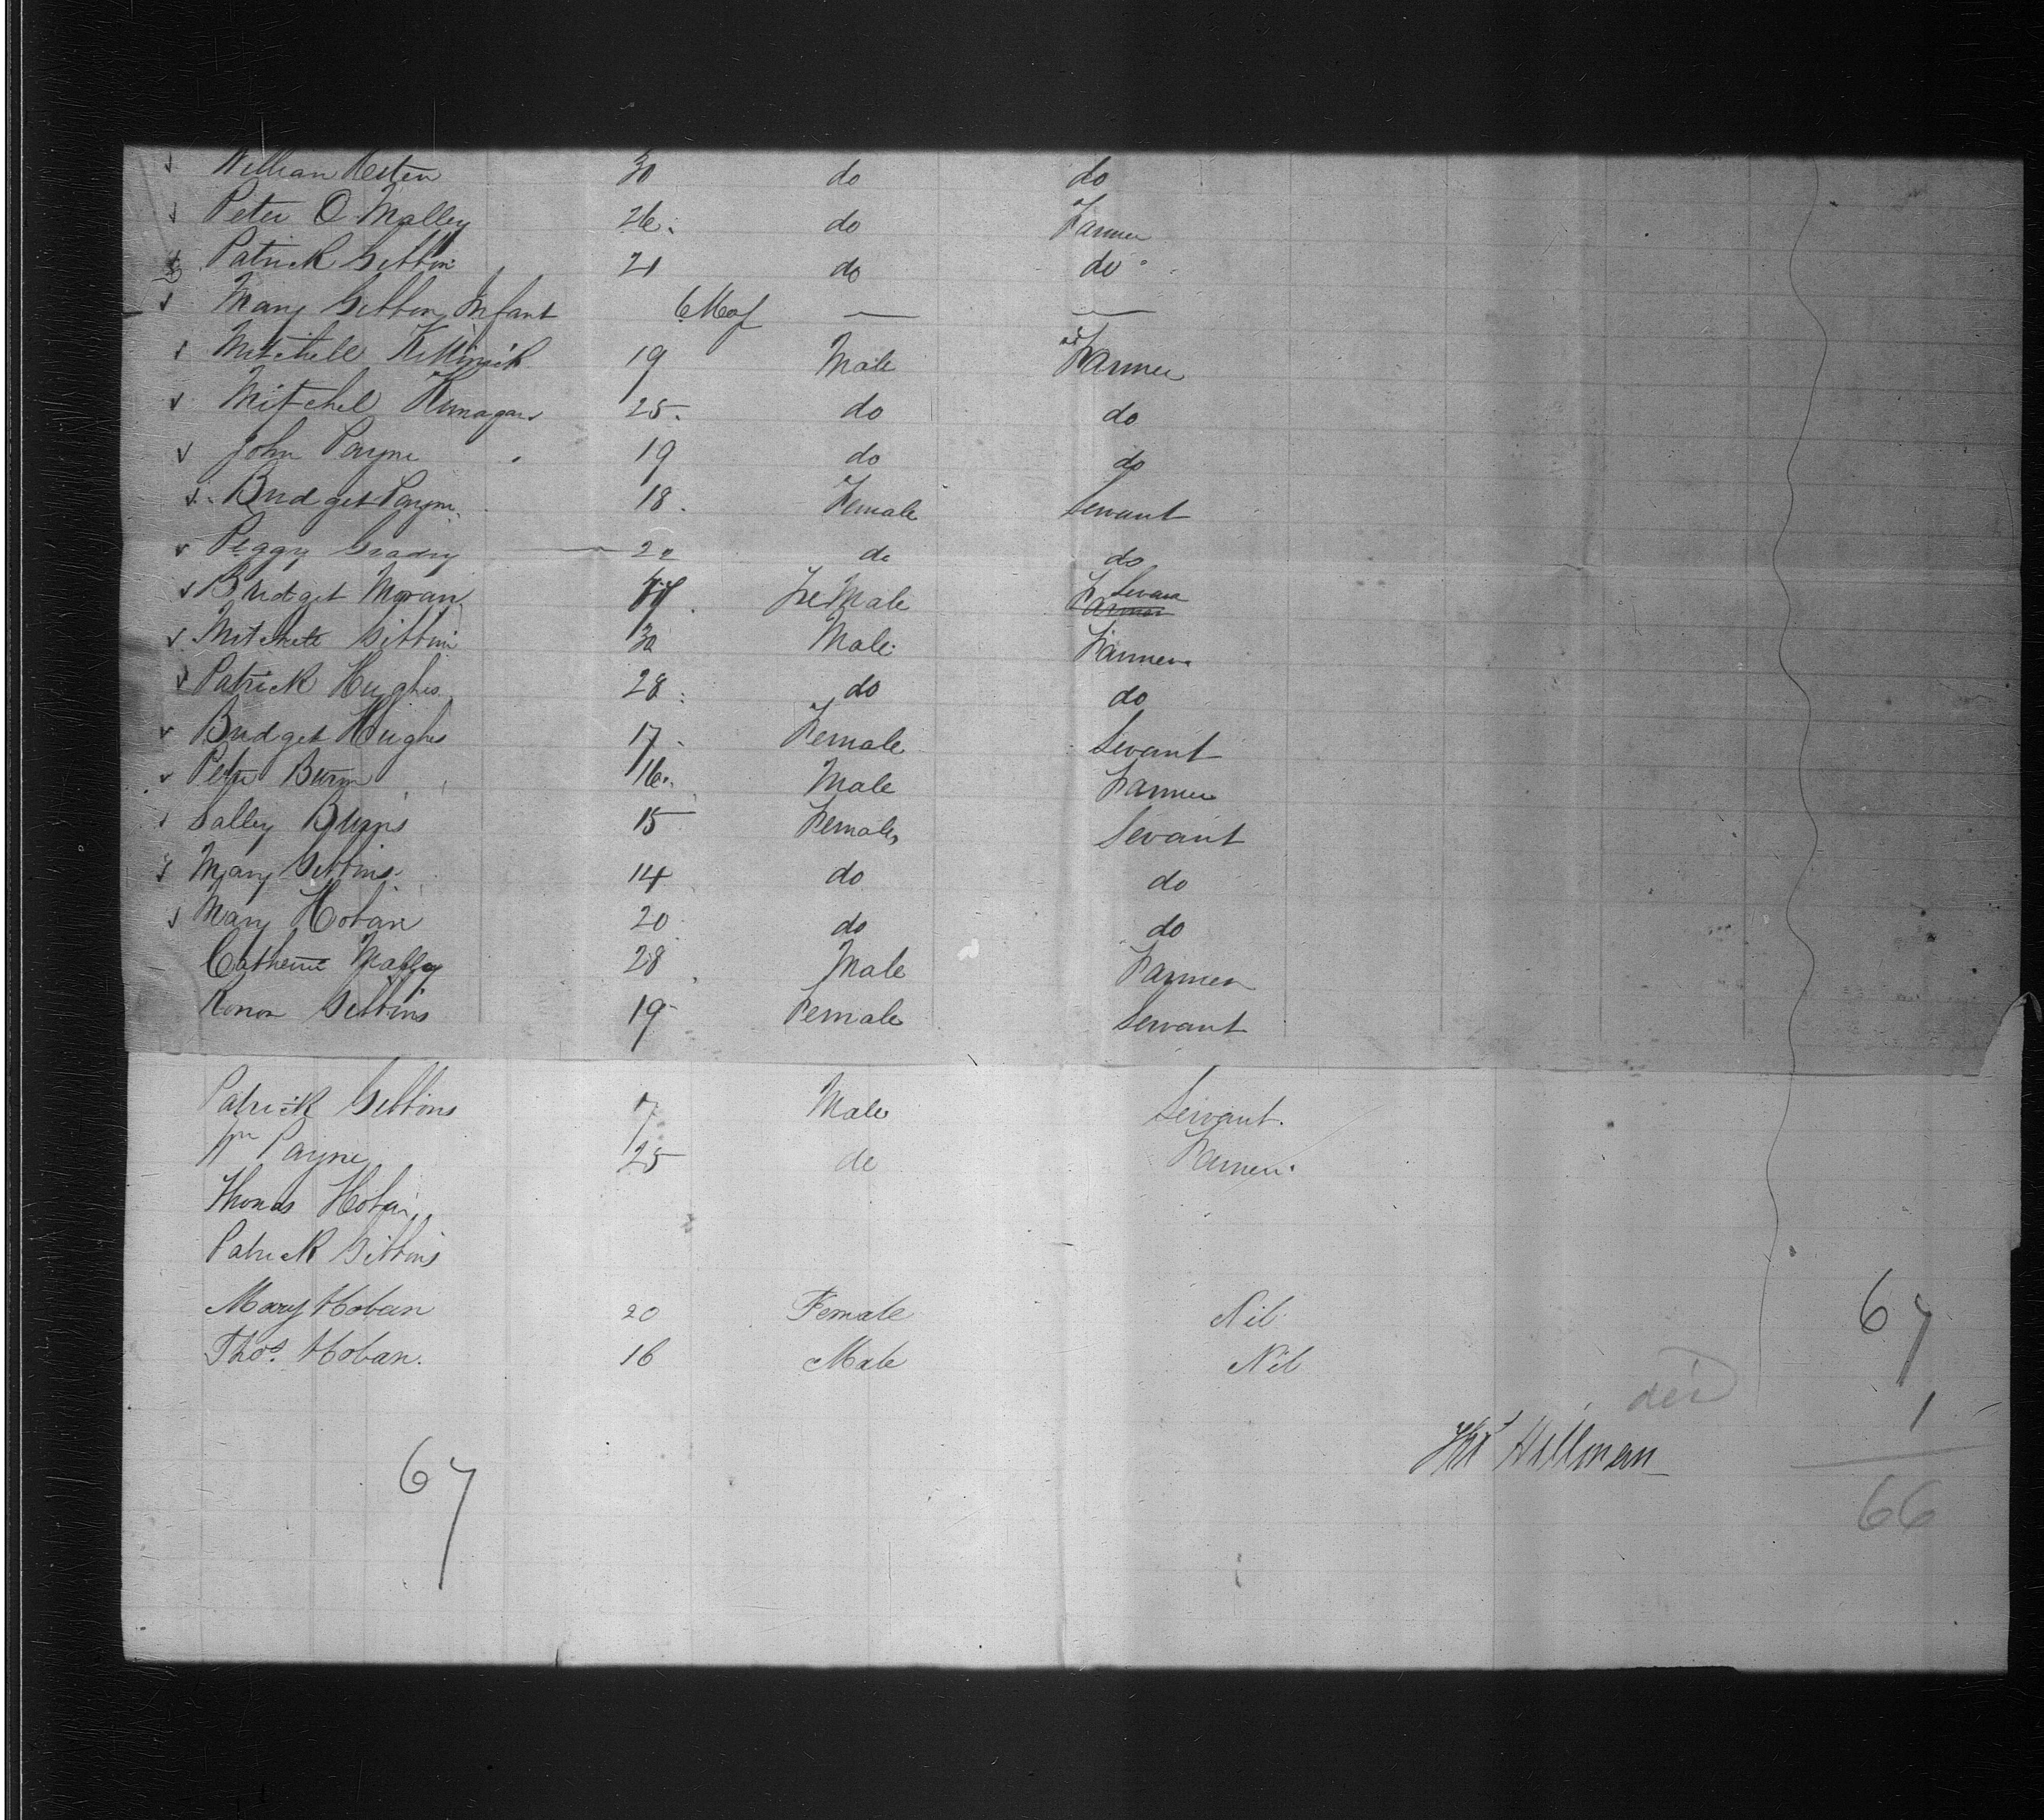 William 30 do do
Peter O Malley 26 do Farmer
Patrick Gibbon 21 do do
Mary Gibbon Infant 6 Mos — —
Mitchell 19 Male Farmer
Mitchel 25 do do
John Payne 19 do do
Bridget Payne 18 Female Servant
Peggy Grady 20 do do
Bridget Moran FeMale Farmer Servan
Gibbins 30 Male Farmer
Patrick Hughes 28 do do
Bridget Hughes 17 Female Sevant
Peter Burns 16 Male Farmer
Salley Burns 15 Female Sevant
Mary Gibbins 14 do do
Mary Hoban 20 do do
Catherine Malley 28 Male Farmer
Honor Gibbins 19 Female Servant
Patrick Gibbons 7 Male Servant.
Payne 25 do Farmer.
Thomas Hoban
Patrick Gibbins
Mary Hoban 20 Female Nil
Thos. Hoban. 16 Male Nil
67
1
66
Hillman
67